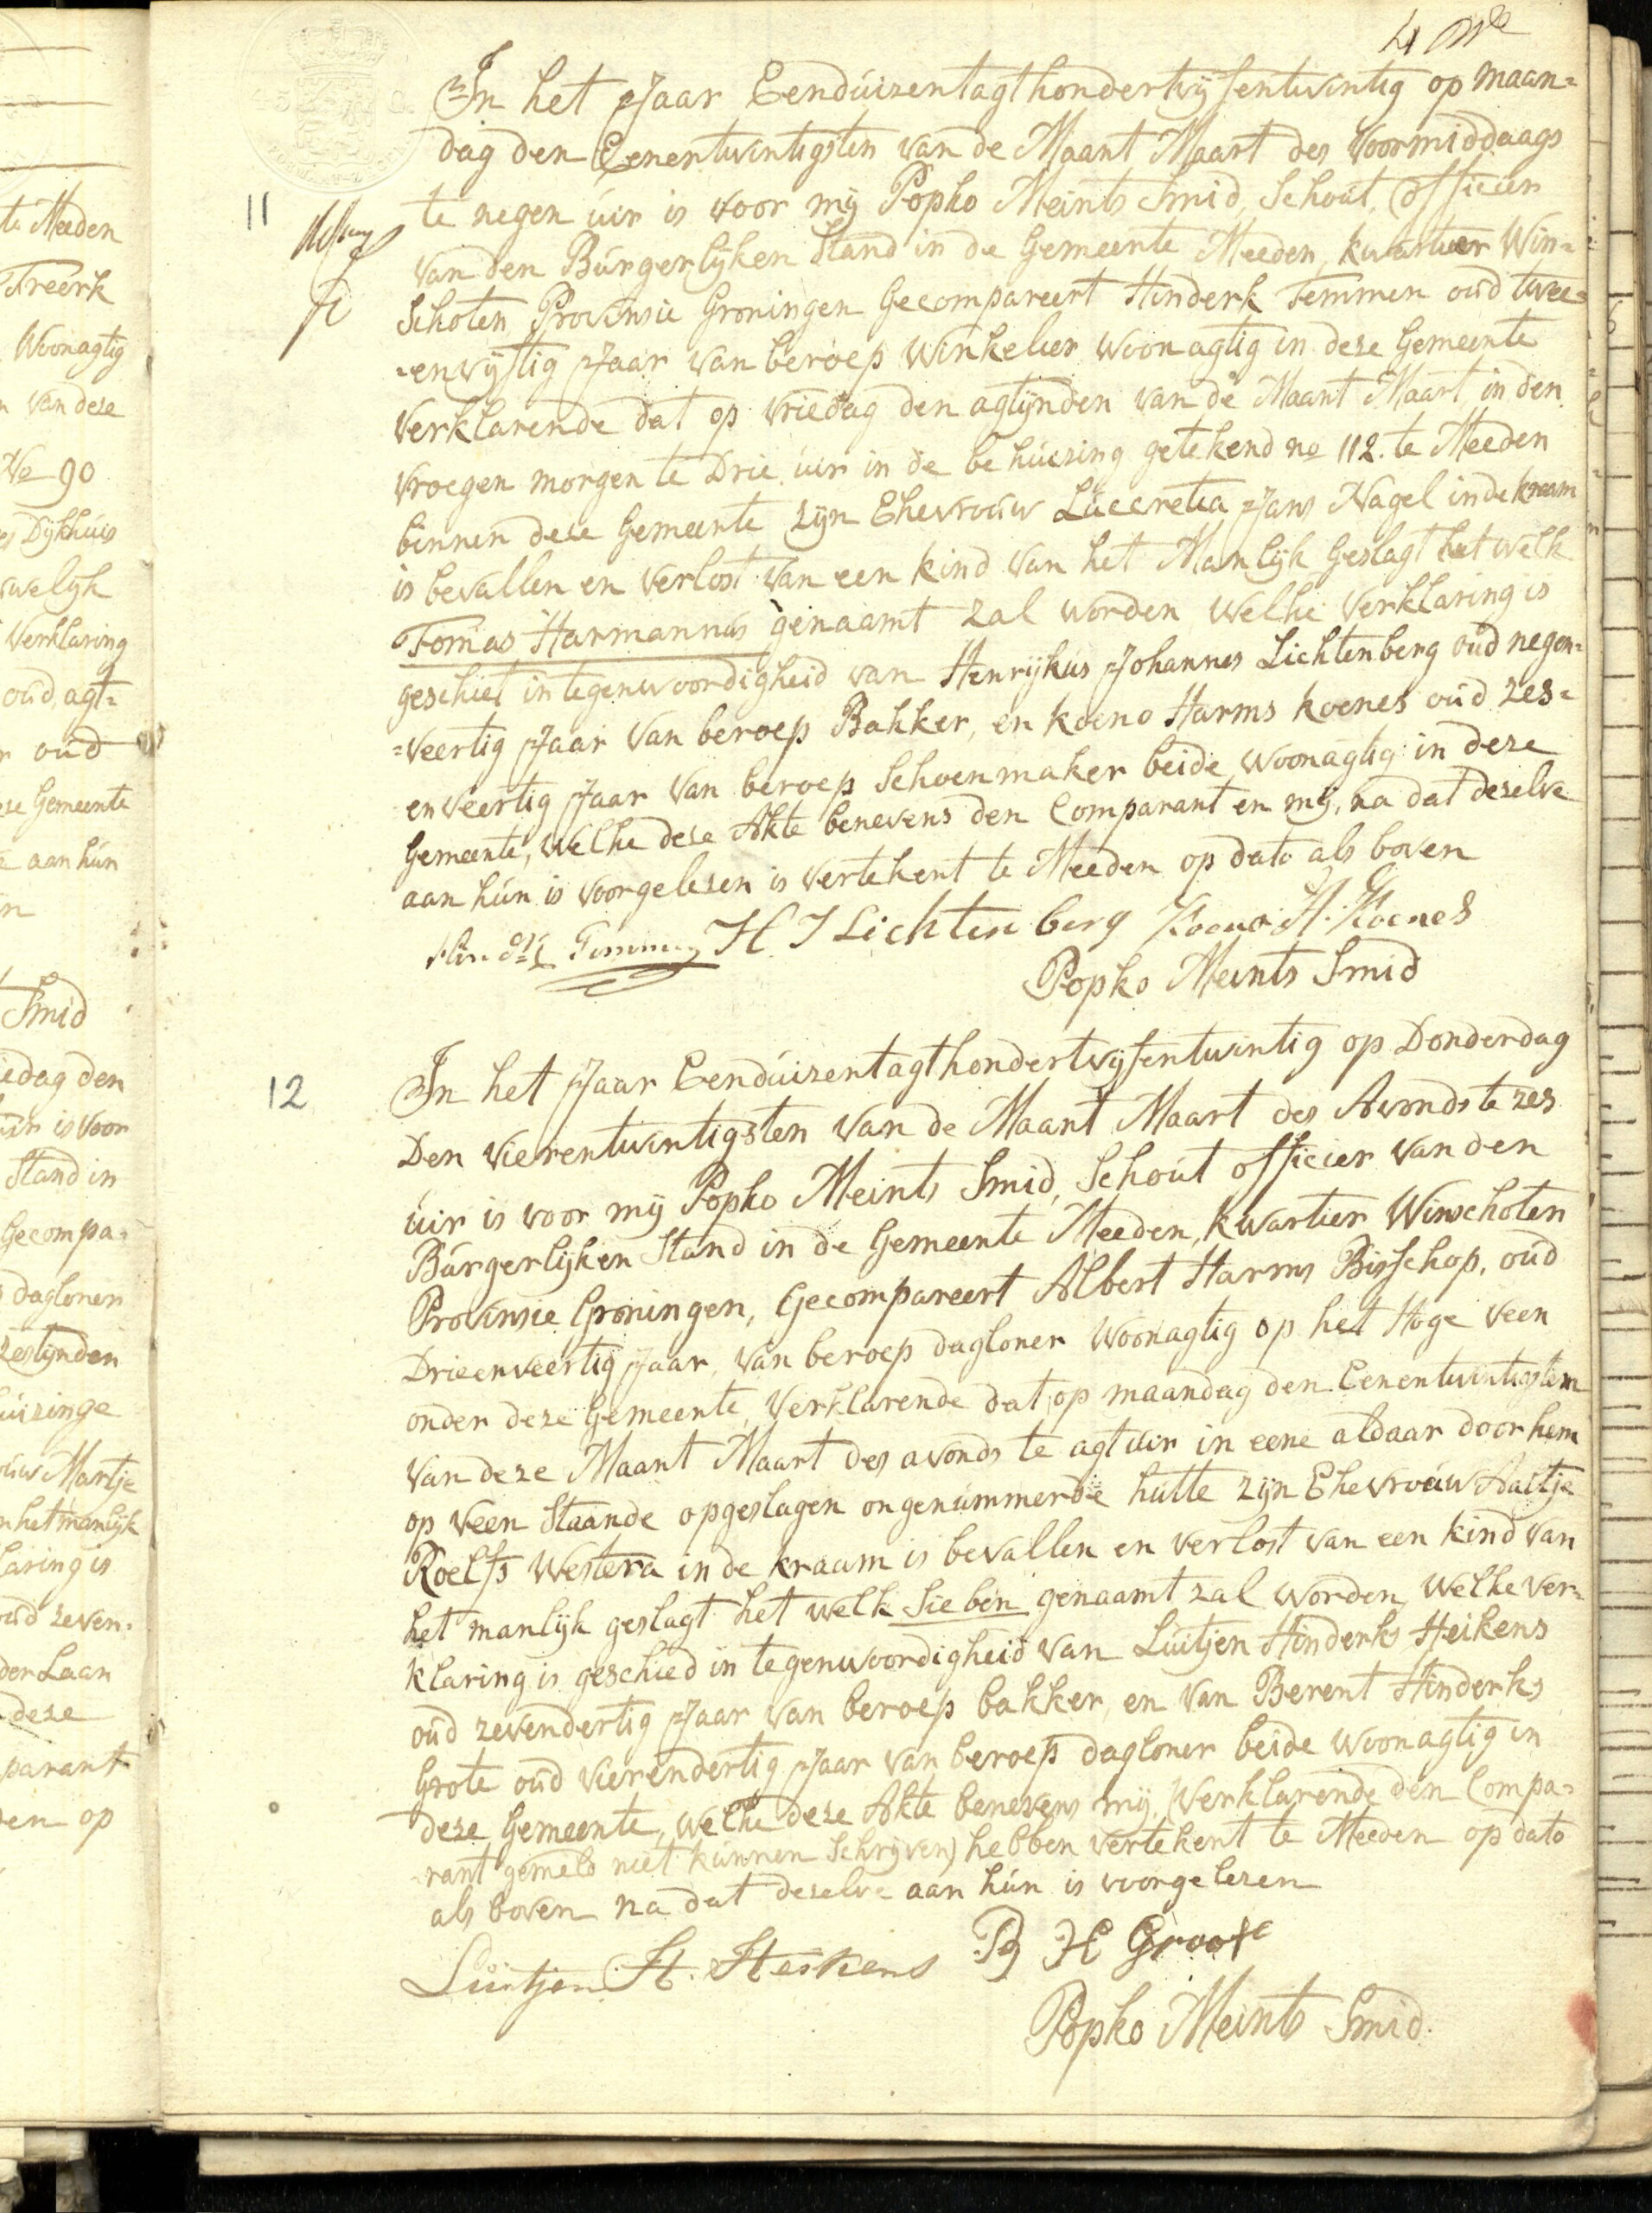 4
In het Jaar Eenduizentagthondertvijfentwintig op Maan=
dag den Eenentwintigsten van de Maant Maart des Voormiddaags
11
te negen uir is voor mij Popko Meints Smid, Schout, Officier
van den Burgerlijken Stand in de Gemeente Meeden, kwartier Win=
Schoten Provinsie Groningen Gecompareert Hinderk Temmen oud twee=
=envijftig Jaar van beroep Winkelier woonagtig in deze Gemeente
Verklarende dat op Vriedag den agtijnden van de Maant Maart in den
vroegen morgen te Drie uir in de behuizing getekend no 112. te Meeden
binnen deze Gemeente zijn Ehevrouw Luccretia Jans Nagel in de kraam
is bevallen en verlost van een kind van het Manlijk Geslagt het welk
Tomas Harmannus genaamt zal worden Welke Verklaring is
geschiet in tegenwoordigheid van Henrijkus Johannes Lichtenberg oud negen=
=veertig Jaar van beroep Bakker, en Koeno Harms Koenes oud zes=
enveertig Jaar van beroep Schoenmaker beide woonagtig in deze
Gemeente, Welke deze Akte benevens den Comparant en mij, na dat dezelve
aan hun is voorgelezen is vertekent te Meeden op dato als boven
H J Lichtenberg Koeno H. Koenes
Popko Meints Smid
12
In het Jaar Eenduizentagthondertvijfentwintig op Donderdag
Den Vierentwintigsten van de Maant Maart des Avonds te zes
uir is voor mij Popko Meints Smid, Schout officier van den
Burgerlijken Stand in de Gemeente Meeden, kwartier Winschoten
Provinsie Groningen, Gecompareert Albert Harms Bisschop, oud
Drieenveertig Jaar, van beroep dagloner woonagtig op het Hoge veen
onder deze Gemeente, Verklarende dat op maandag den Eenentwintigsten
van deze Maant Maart des avonds te agt uir in eene aldaar door hem
op veen Staande opgeslagen ongenummerde hutte zijn Ehevrouw Aaltje
Roelfs Westera in de kraam is bevallen en verlost van een kind van
het manlijk geslagt het welk Sieben genaamt zal worden, Welke ver=
klaring is geschied in tegenwoordigheid van Luitjen Hinderks Heikens
oud zevendertig Jaar van beroep bakker, en van Berent Hinderks
Grote oud vierendertig Jaar van beroep dagloner beide woonagtig in
deze Gemeente, welke deze Akte benevens mij, (Verklarende den Compa=
rant gemeld niet kunnen Schrijven) hebben vertekent te Meeden op dato
als boven na dat dezelve aan hun is voorgelezen
Luitjen H. Heikens B H Groote
Popko Meints Smid.
te Meeden
Freerk
Woonagtig
van deze
No 90
Dijkhuis
Verklaring
oud agt=
oud
Gemeente
aan hun
Smid
den
is voor
Stand in
Gecompa=
dagloner
Martje
het manlijk
oud zeven=
der Laan
deze
op